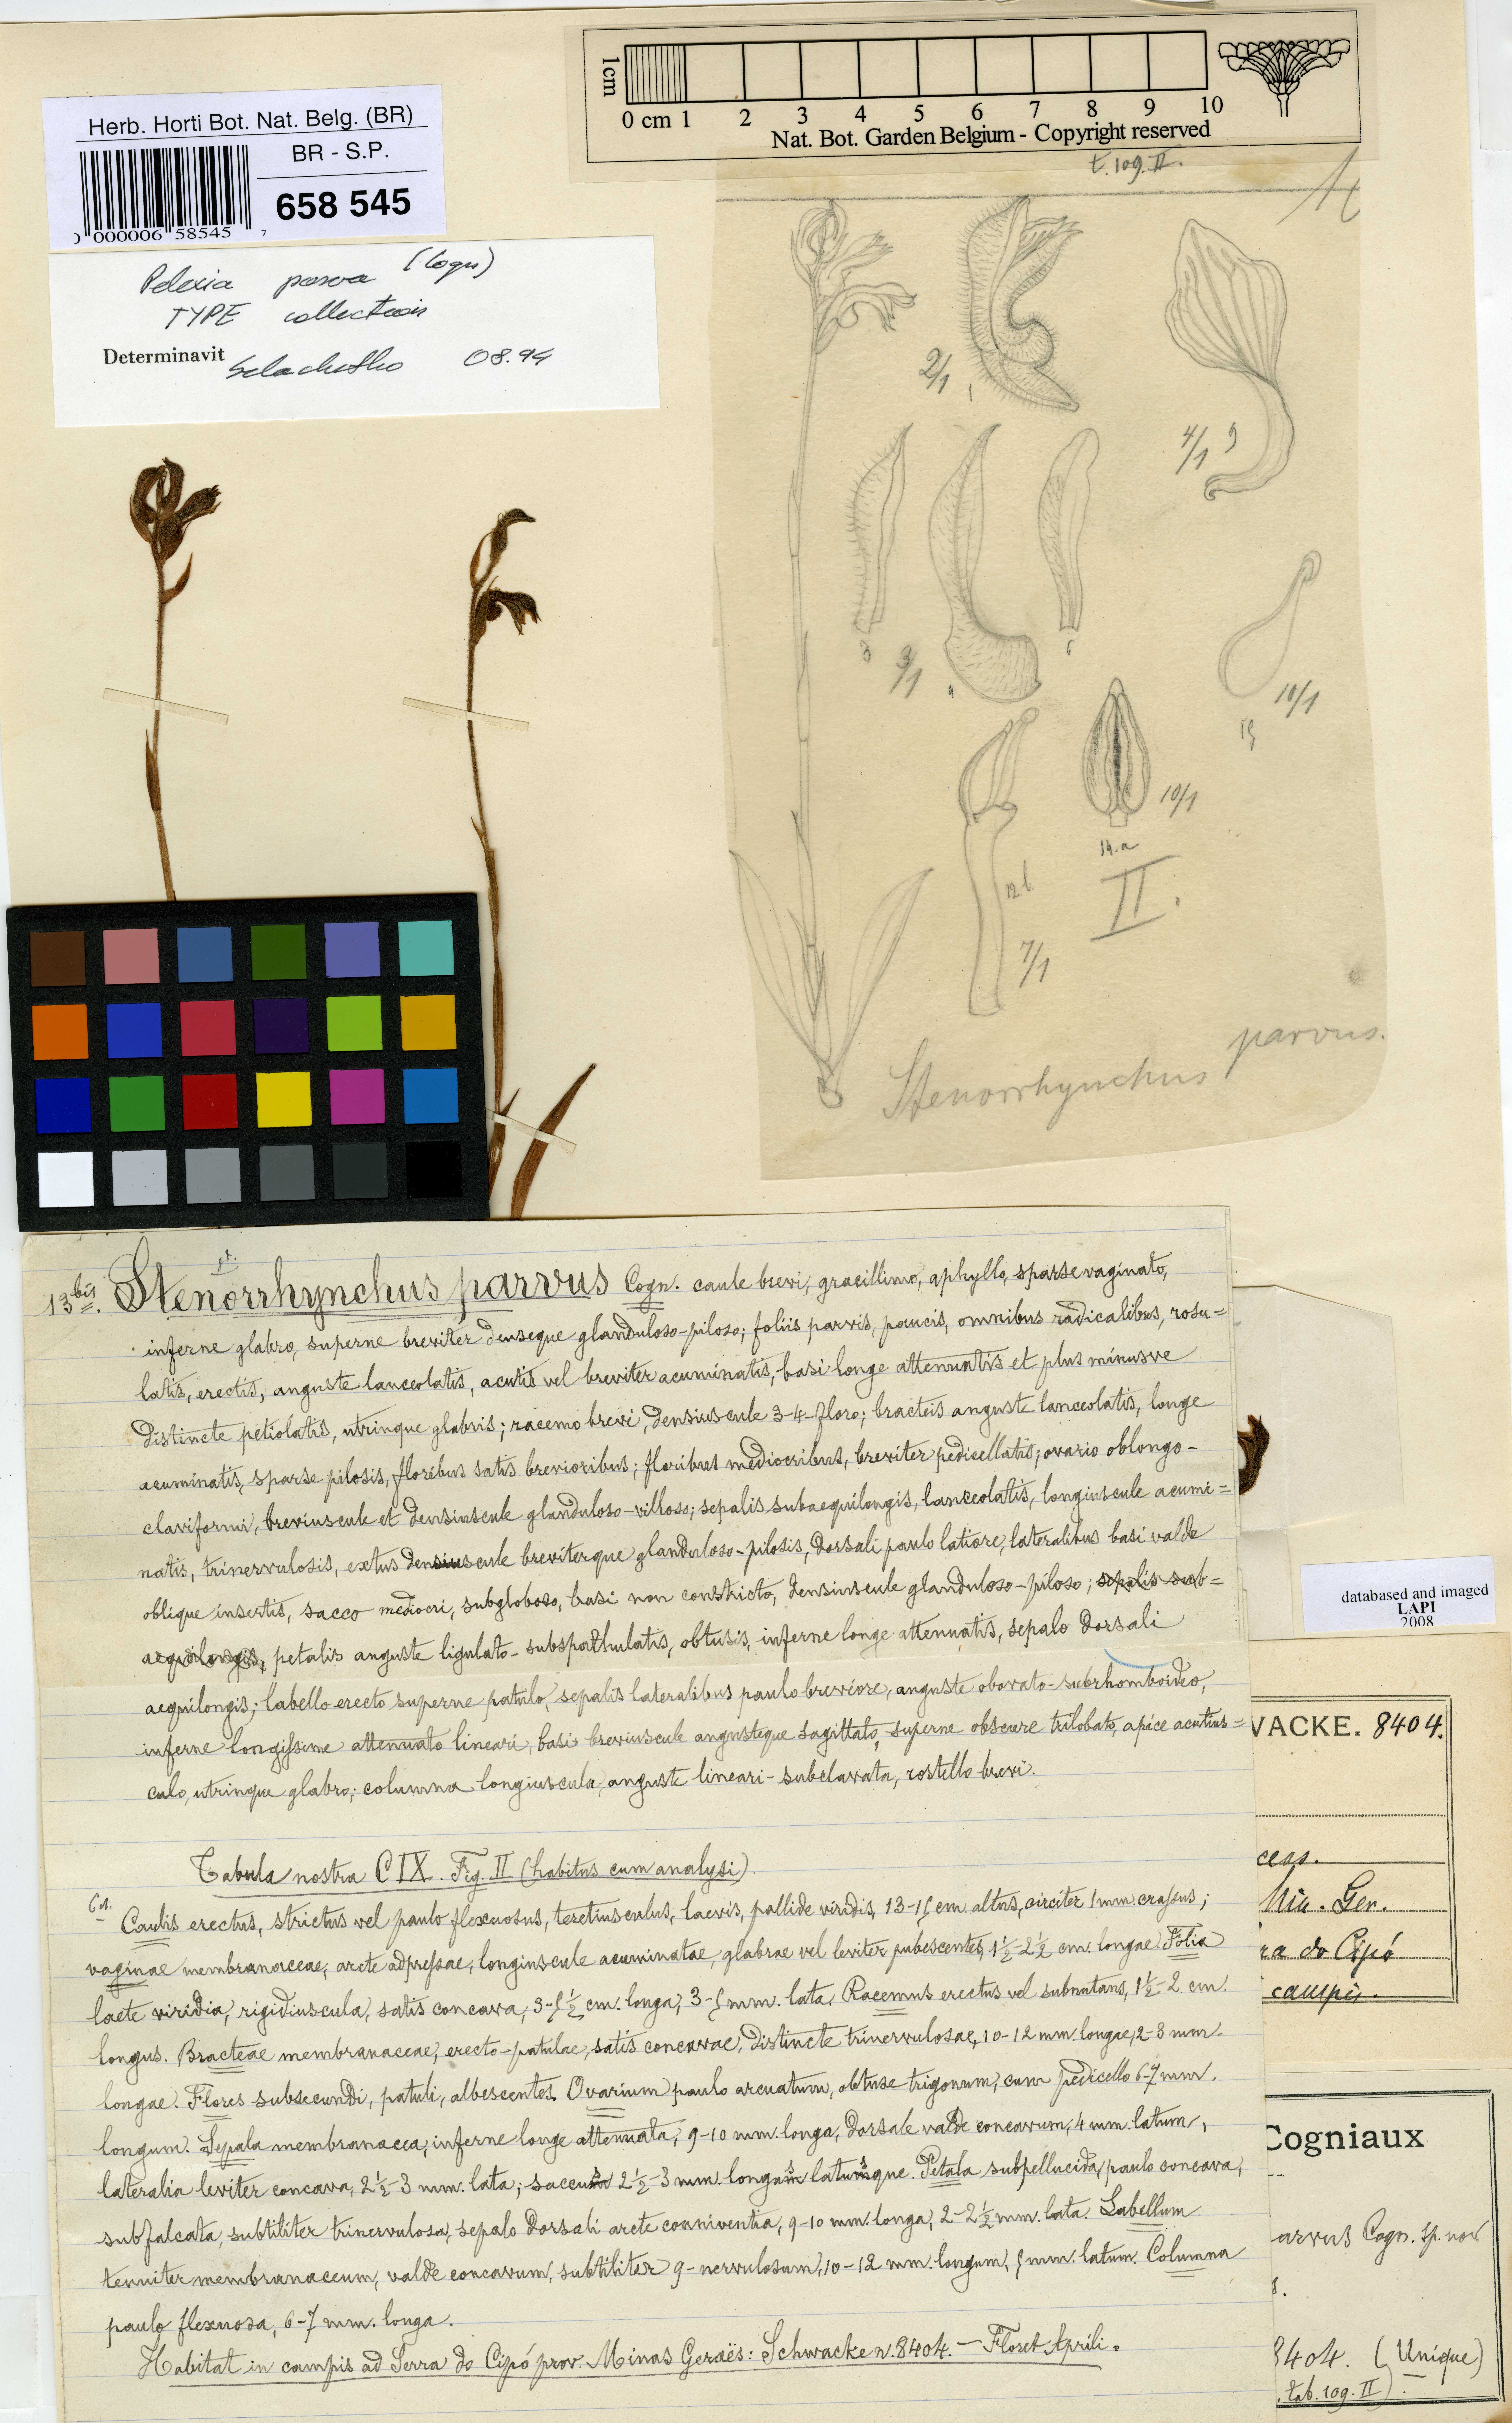 1cm
0 cm 1 2 3 4 5 6 7 8 9 10
Nat. Bot. Garden Belgium - Copyright reserved
Herb. Horti Bot. Nat. Belg. (BR)
BR - S.P.
658 545
000006 58545 7
Pelexia parva (Cogn)
TYPE collection
Determinavit Szlachetko 08.94
t. 109. II.
2/1
4/1 9
3 3/1 4 6
10/1
14.a
10/1
12 b
7/1
II.
Stenorrhynchus parvus.
13 bis. Stenorrhynchus parvus Cogn. caule brevi, gracillimo, aphyllo, sparse vaginato,
inferne glabro, superne breviter denseque glanduloso-piloso; foliis parvis, paucis, omnibus radicalibus, rosu=
latis, erectis, anguste lanceolatis, acutis vel breviter acuminatis, basi longe attenuatis et plus minusve
distincte petiolatis, utrinque glabris; racemo brevi, densiuscule 3-4-floro; bracteis anguste lanceolatis, longe
acuminatis, sparse pilosis, floribus satis brevioribus; floribus mediocribus, breviter pedicellatis; ovario oblongo-
claviformi, breviuscule et densiuscule glanduloso-villoso; sepalis subaequilongis, lanceolatis, longiuscule acumi=
natis, trinervulosis, extus densiuscule breviterque glanduloso-pilosis, dorsali paulo latiore, lateralibus basi valde
oblique insertis, sacco mediocri, subgloboso, basi non constricto, densiuscule glanduloso-piloso; sepalis sub=
aequilongis, petalis anguste ligulato-subspathulatis, obtusis, inferne longe attenuatis, sepalo dorsali
aequilongis; labello erecto superne patulo, sepalis lateralibus paulo breviore, anguste obovato-subrhomboideo,
inferne longissime attenuato lineari, basi breviuscule angusteque sagittato, superne obscure trilobato, apice acutius=
culo, utrinque glabro; columna longiuscula, anguste lineari-subclavata, rostello brevi.
Tabula nostra CIX. Fig. II (habitus cum analysi).
Caulis erectus, strictus vel paulo flexuosus, teretiusculus, laevis, pallide viridis, 13-15 cm altus, circiter 1 mm crassus;
vaginae membranaceae, arcte adpressae, longiuscule acuminatae, glabrae vel leviter pubescentes, 1½-2½ cm. longae. Folia
laete viridia, rigidiuscula, satis concava, 3-5½ cm. longa, 3-5 mm. lata. Racemus erectus vel subnutans, 1½-2 cm.
longus. Bracteae membranaceae, erecto-patulae, satis concavae, distincte trinervulosae, 10-12 mm. longae, 2-3 mm.
longae. Flores subsecundi, patuli, albescentes. Ovarium paulo arcuatum, obtuse trigonum, cum pedicello 6-7 mm.
longum. Sepala membranacea, inferne longe attenuata, 9-10 mm. longa, dorsale valde concavum, 4 mm. latum,
lateralia leviter concava, 2½-3 mm. lata; saccus 2½-3 mm. longus latusque. Petala subpellucida, paulo concava,
subfalcata, subtiliter trinervulosa, sepalo dorsali arcte conniventia, 9-10 mm. longa, 2-2½ mm. lata. Labellum
tenuiter membranaceum, valde concavum, subtiliter 9-nervulosum, 10-12 mm. longum, 5 mm. latum. Columna
paulo flexuosa, 6-7 mm. longa.
Habitat in campis ad Serra do Cipó prov. Minas Geraës: Schwacke n. 8404. — Floret Aprili.
databased and imaged
LAPI
2008
VACKE. 8404.
cess.
Min. Ger.
ra do Cipó
campis.
Cogniaux
arvus Cogn. sp. nov.
8404. (Unique)
tab. 109. II).